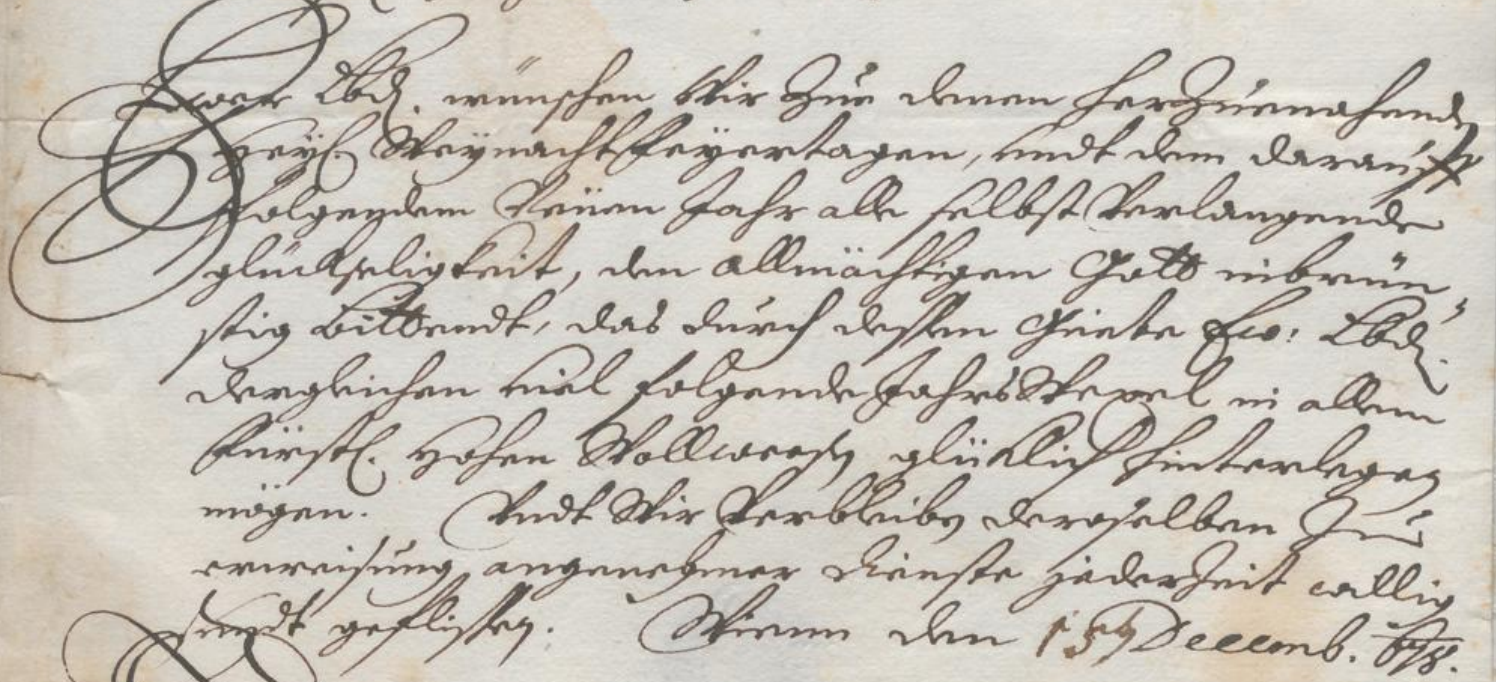 Ewer Lbd. wünschen Wir Zue denen herZuenahenden
Heyl. Weynacht Feyertagen, undt dem darauff
folgendem Neüen Jahr alle selbst Verlangende
glückseligkeit, den Allmächtigen Gott inbrün-
stig bittendt, das durch dessen Güete Ew: Lbd.
dergleichen viel folgende Jahrs Wexel in allem
Fürstl. Hohen Wollweesen glücklich hinterlegen
mögen. Undt Wir Verbleiben deroselben Zu
erweisung angenehmer dienste jederZeit willig
undt geflissen. Wienn den 15 Decemb. 678.